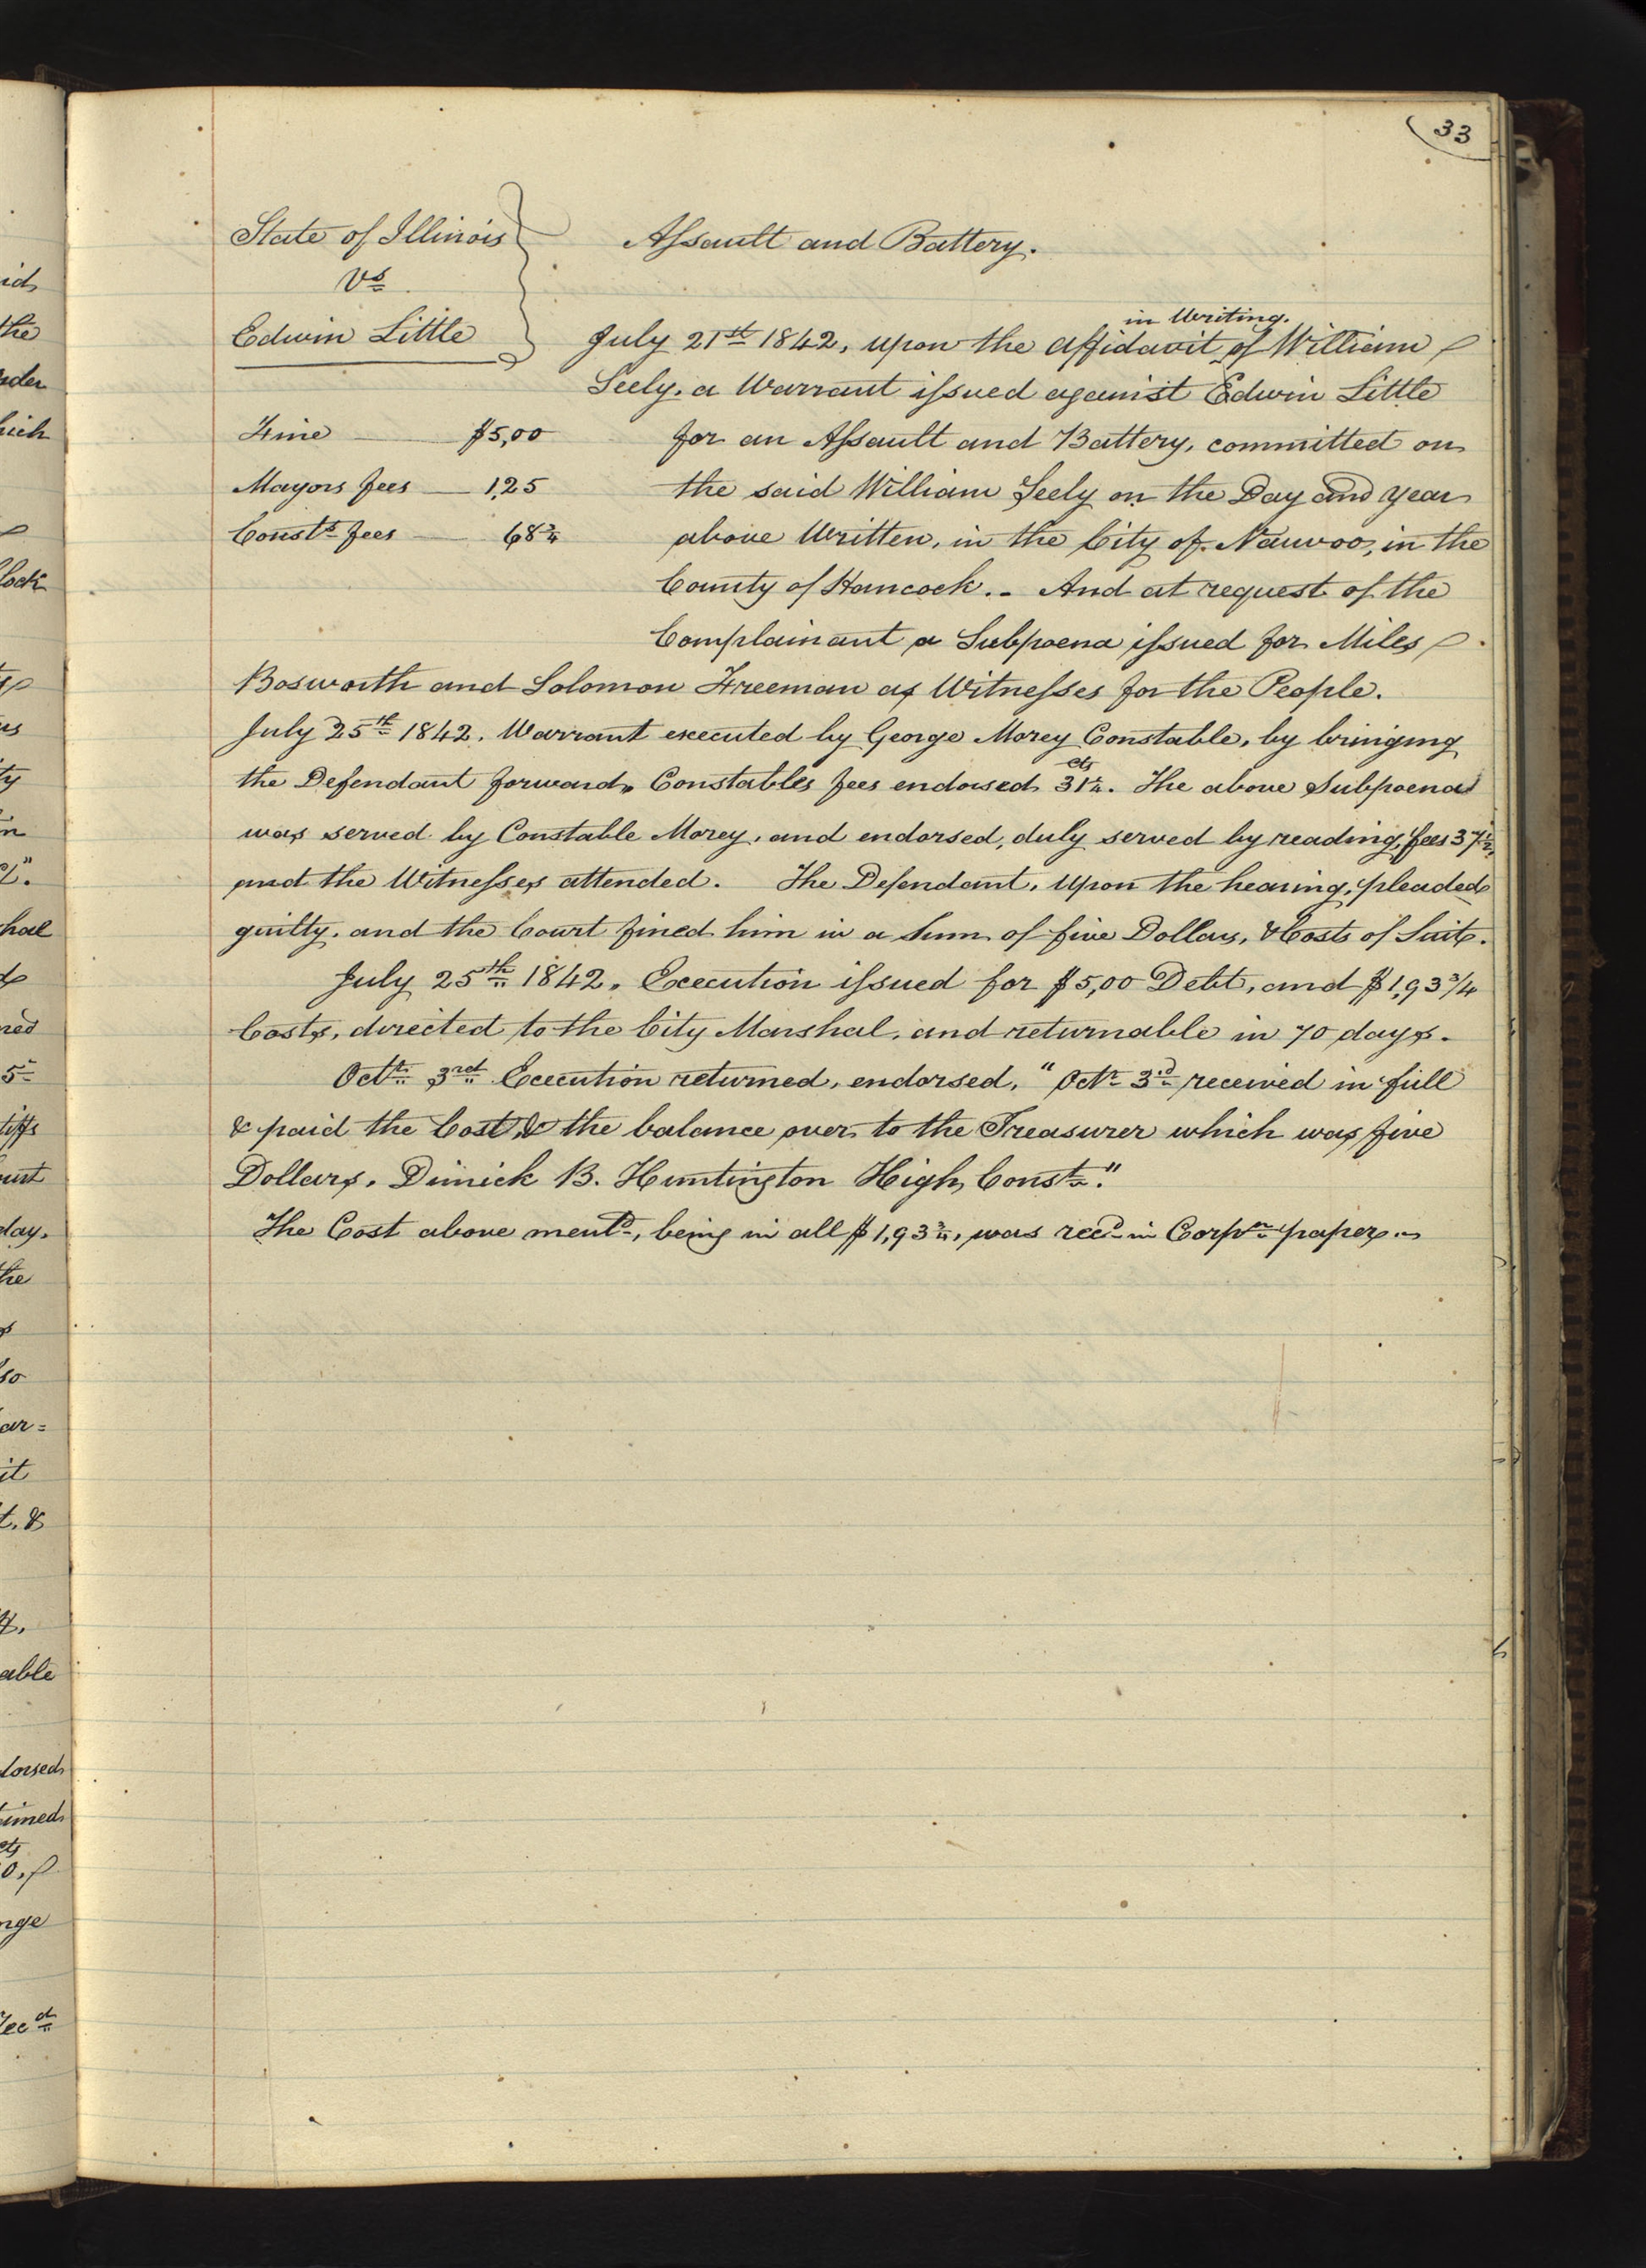 33
State of Illinois
Vs
Edwin Little
Assault and Battery.
in Writing.
July 21st 1842, upon the affidavit of William
Seely, a Warrant issued against Edwin Little
Fine $5,00
for an Assault and Battery, committed on
Mayors fees 1,25
the said William Seely on the Day and year
Consts fees 68¾
above Written, in the City of Nauvoo, in the
County of Hancock.- And at request of the
Complainant a Subpoena issued for Miles
Bosworth and Solomon Freeman as Witnesses for the People.
July 25th 1842. Warrant executed by George Morey Constable, by bringing
cts
the Defendant forward, Constables fees endorsed 31¼. The above Subpoena
was served by Constable Morey, and endorsed, duly served by reading, fees 37½,
and the Witnesses attended. The Defendant, upon the hearing, pleaded
guilty, and the Court fined him in a Sum of five Dollars, & Costs of Suit.
July 25th 1842, Execution issued for $5,00 Debt, and $1,93 3/4
Costs, directed to the City Marshal, and returnable in 70 days.
Octr 3rd Execution returned, endorsed, "Octr 3rd received in full
& paid the Cost, & the balance over to the Treasurer which was five
Dollars. Dimick B. Huntington High Constl."
The Cost above mentd, being in all $1,93¾, was recd in Corpn paper.
id
the
nder
hich
lock
us
ty
in
hal
red
5
tiffs
urt
day.
the
so
ar=
it
t, &
able
dorsed
urned
cts
nge